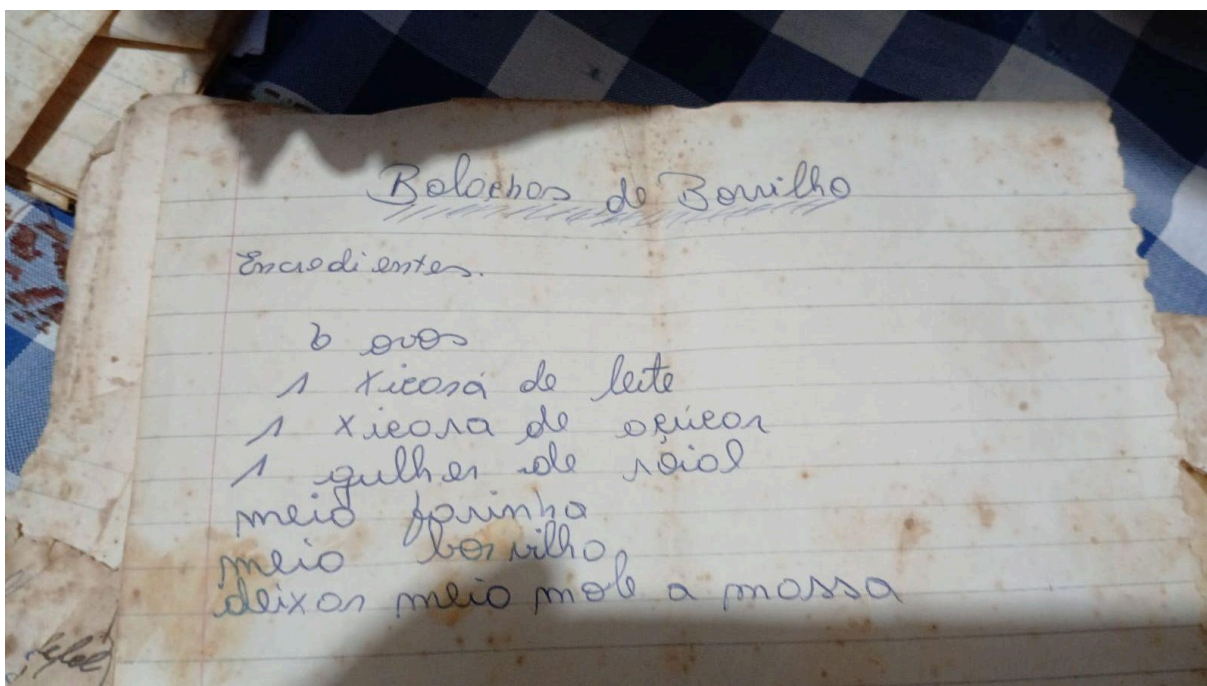 Bolachas de Borvilho
Encredientes.
6 ovos
1 xicara de leite
1 xicara de açúcar
1 gulher de roial
meio farinha
meio borvilho
deixar meio mole a massa